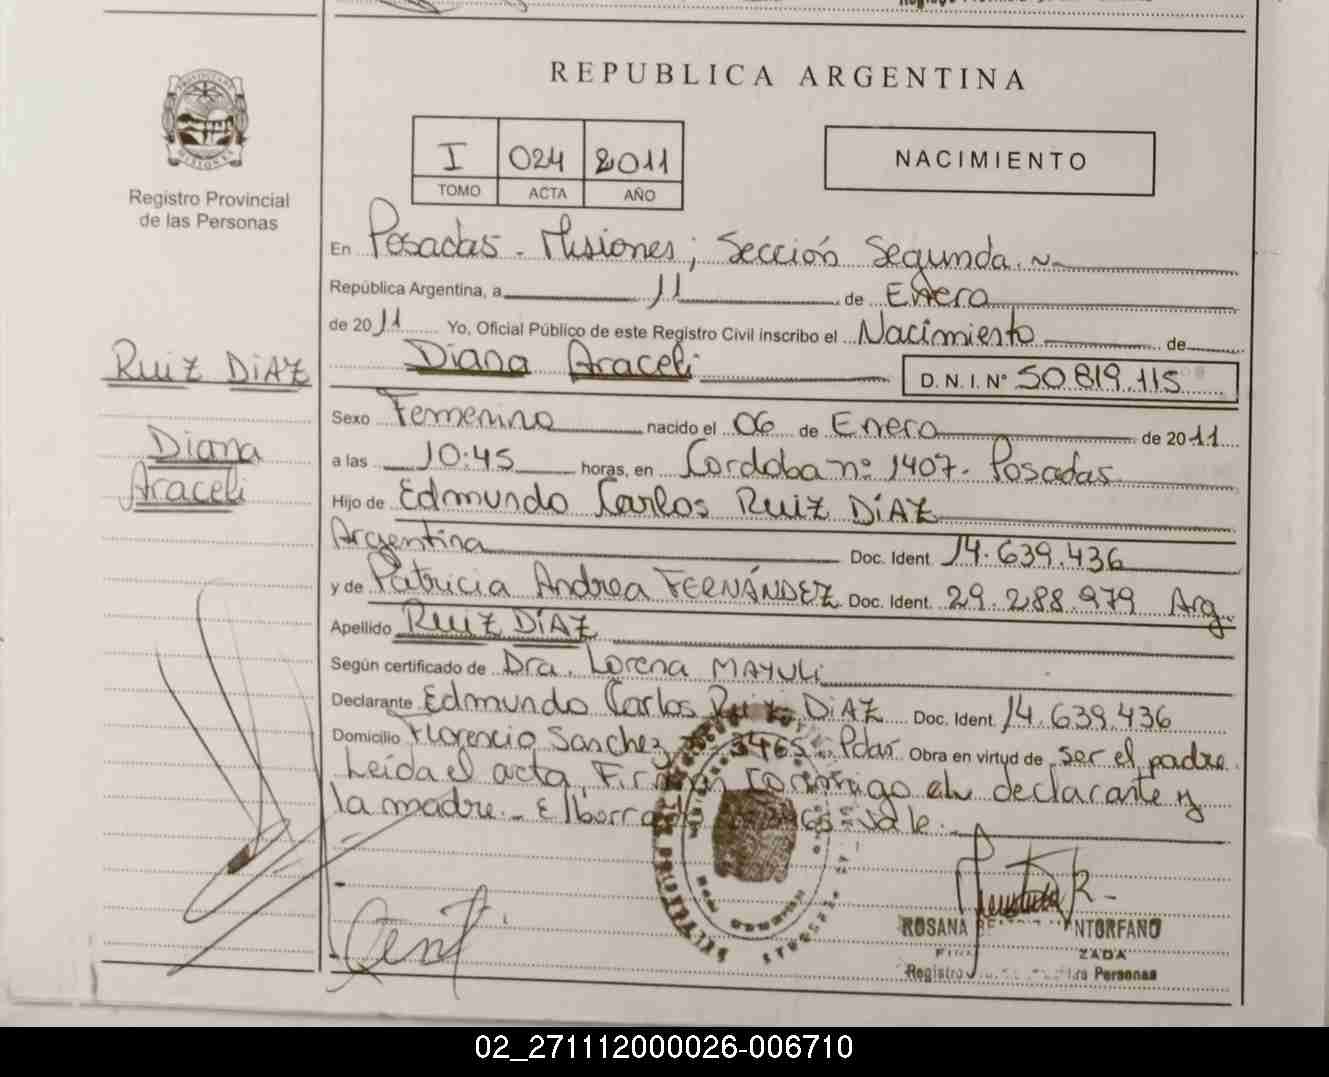 REPUBLICA ARGENTINA
Registro Provincial
de las Personas
I 024 2011
TOMO ACTA AÑO
NACIMIENTO
En Posadas - Misiones; Sección Segunda.
República Argentina, a 11 de Enero
de 2011 Yo, Oficial Público de este Registro Civil inscribo el Nacimiento de
Diana Araceli D.N.I.N° 50.819.115
RUIZ DIAZ
Diana
Araceli
Sexo Femenino nacido el 06 de Enero de 2011
a las 10:45 horas, en Cordoba nº 1407. Posadas
Hijo de Edmundo Carlos RUIZ DÍAZ
Argentina Doc. Ident. 14.639.436
y de Patricia Andrea FERNÁNDEZ Doc. Ident. 29.288.979 Arg.
Apellido RUIZ DÍAZ
Según certificado de Dra. Lorena MAYULI
Declarante Edmundo Carlos Ruiz DIAZ Doc. Ident. 14.639.436
Domicilio Florencio Sanchez 3465 Pdas Obra en virtud de ser el padre
Leída el acta, Firman conmigo el declarante y
la madre. - El borrado 3465 vale.
ROSANA
Registro Personas
02_271112000026-006710